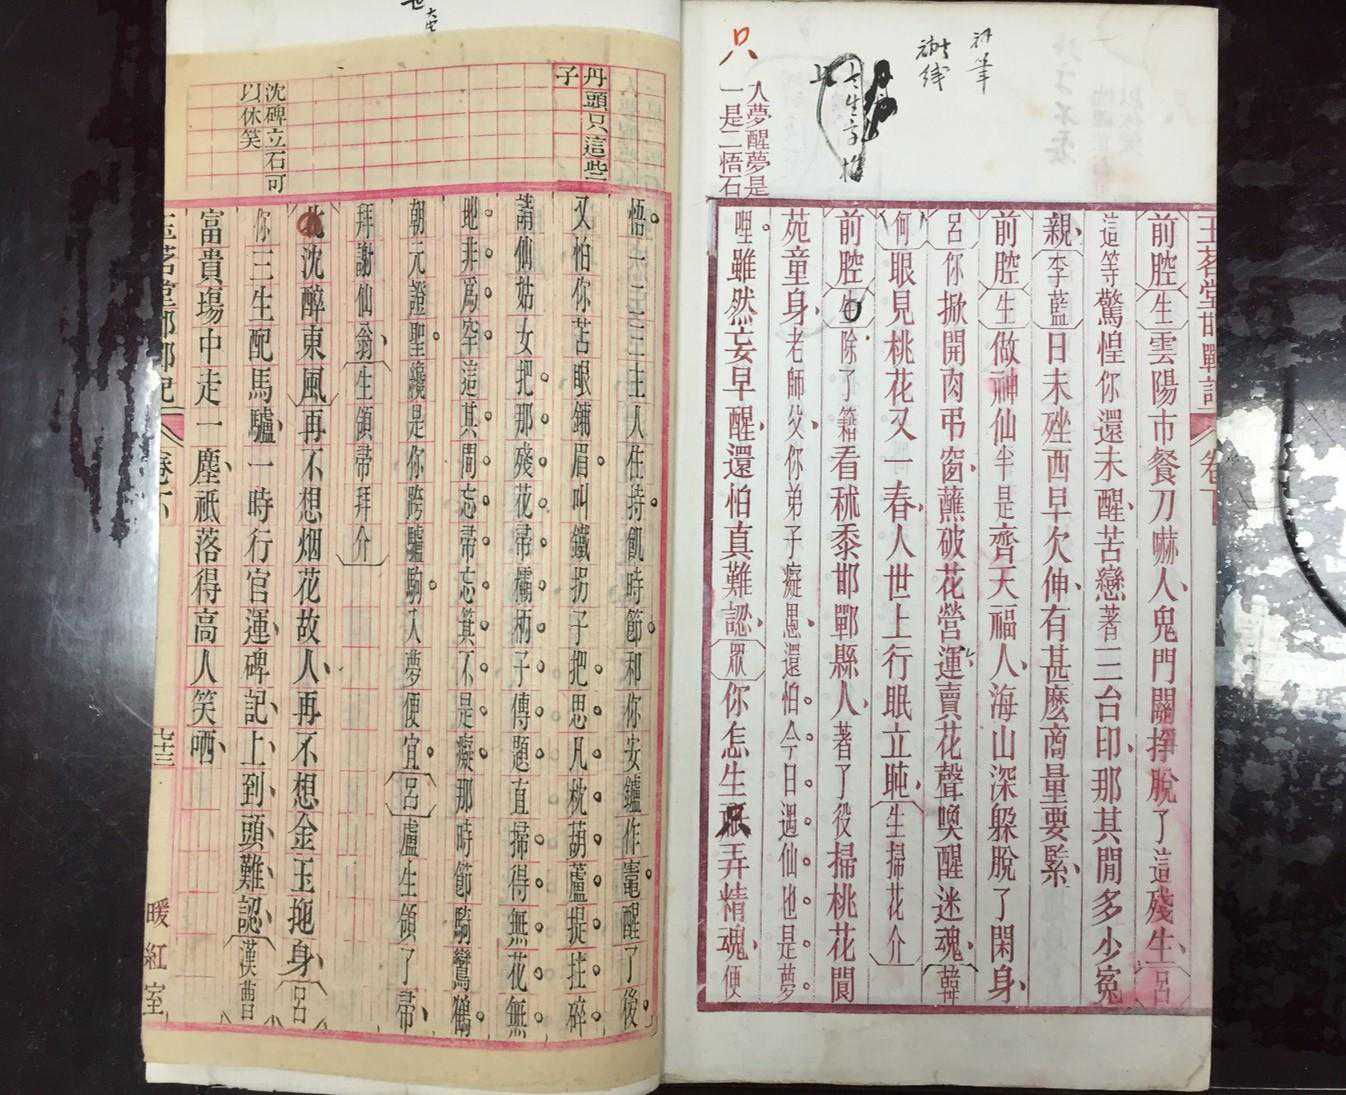 只
補筆
人夢醒夢是
一是二悟石
玉茗堂邯鄲記
卷下
前腔生雲陽市餐刀嚇人鬼門關掙脫了這殘生呂
這等驚惶你還未醒苦戀著三台印那其間多少寃
親李藍日未矬西早欠伸有甚麽商量要緊
前腔生做神仙半是齊天福人海山深躱脫了閑身
呂你掀開肉弔窗蘸破花營運賣花聲喚醒迷魂韓
何眼見桃花又一春人世上行眠立盹生掃花介
前腔生除了籍看秫黍邯鄲縣人著了役掃桃花閬
苑童身老師父你弟子癡愚還怕今日遇仙也是夢
哩雖然妄早醒還怕眞難認眾你怎生只弄精魂便
丹頭只這些
子
沈碑立石可
以休笑
悟一三三主人住持飢時節和你安鑪作竈醒了後
又怕你苦眼鋪眉叫鐵拐子把思凡枕葫蘆提拄碎
請仙姑女把那殘花帚欛柄子傳題直掃得無花無
地非爲罕這其間忘帚忘箕不是癡那時節騎鸞鶴
朝元證聖纔是你跨驢駒入夢便宜呂盧生領了帚
拜謝仙翁生領帚拜介
沈醉東風再不想烟花故人再不想金玉拖身呂
你三生配馬驢一時行官運碑記上到頭難認漢曹
富貴場中走一塵祗落得高人笑哂
玉茗堂邯鄲記
卷下
七十三
暖紅室